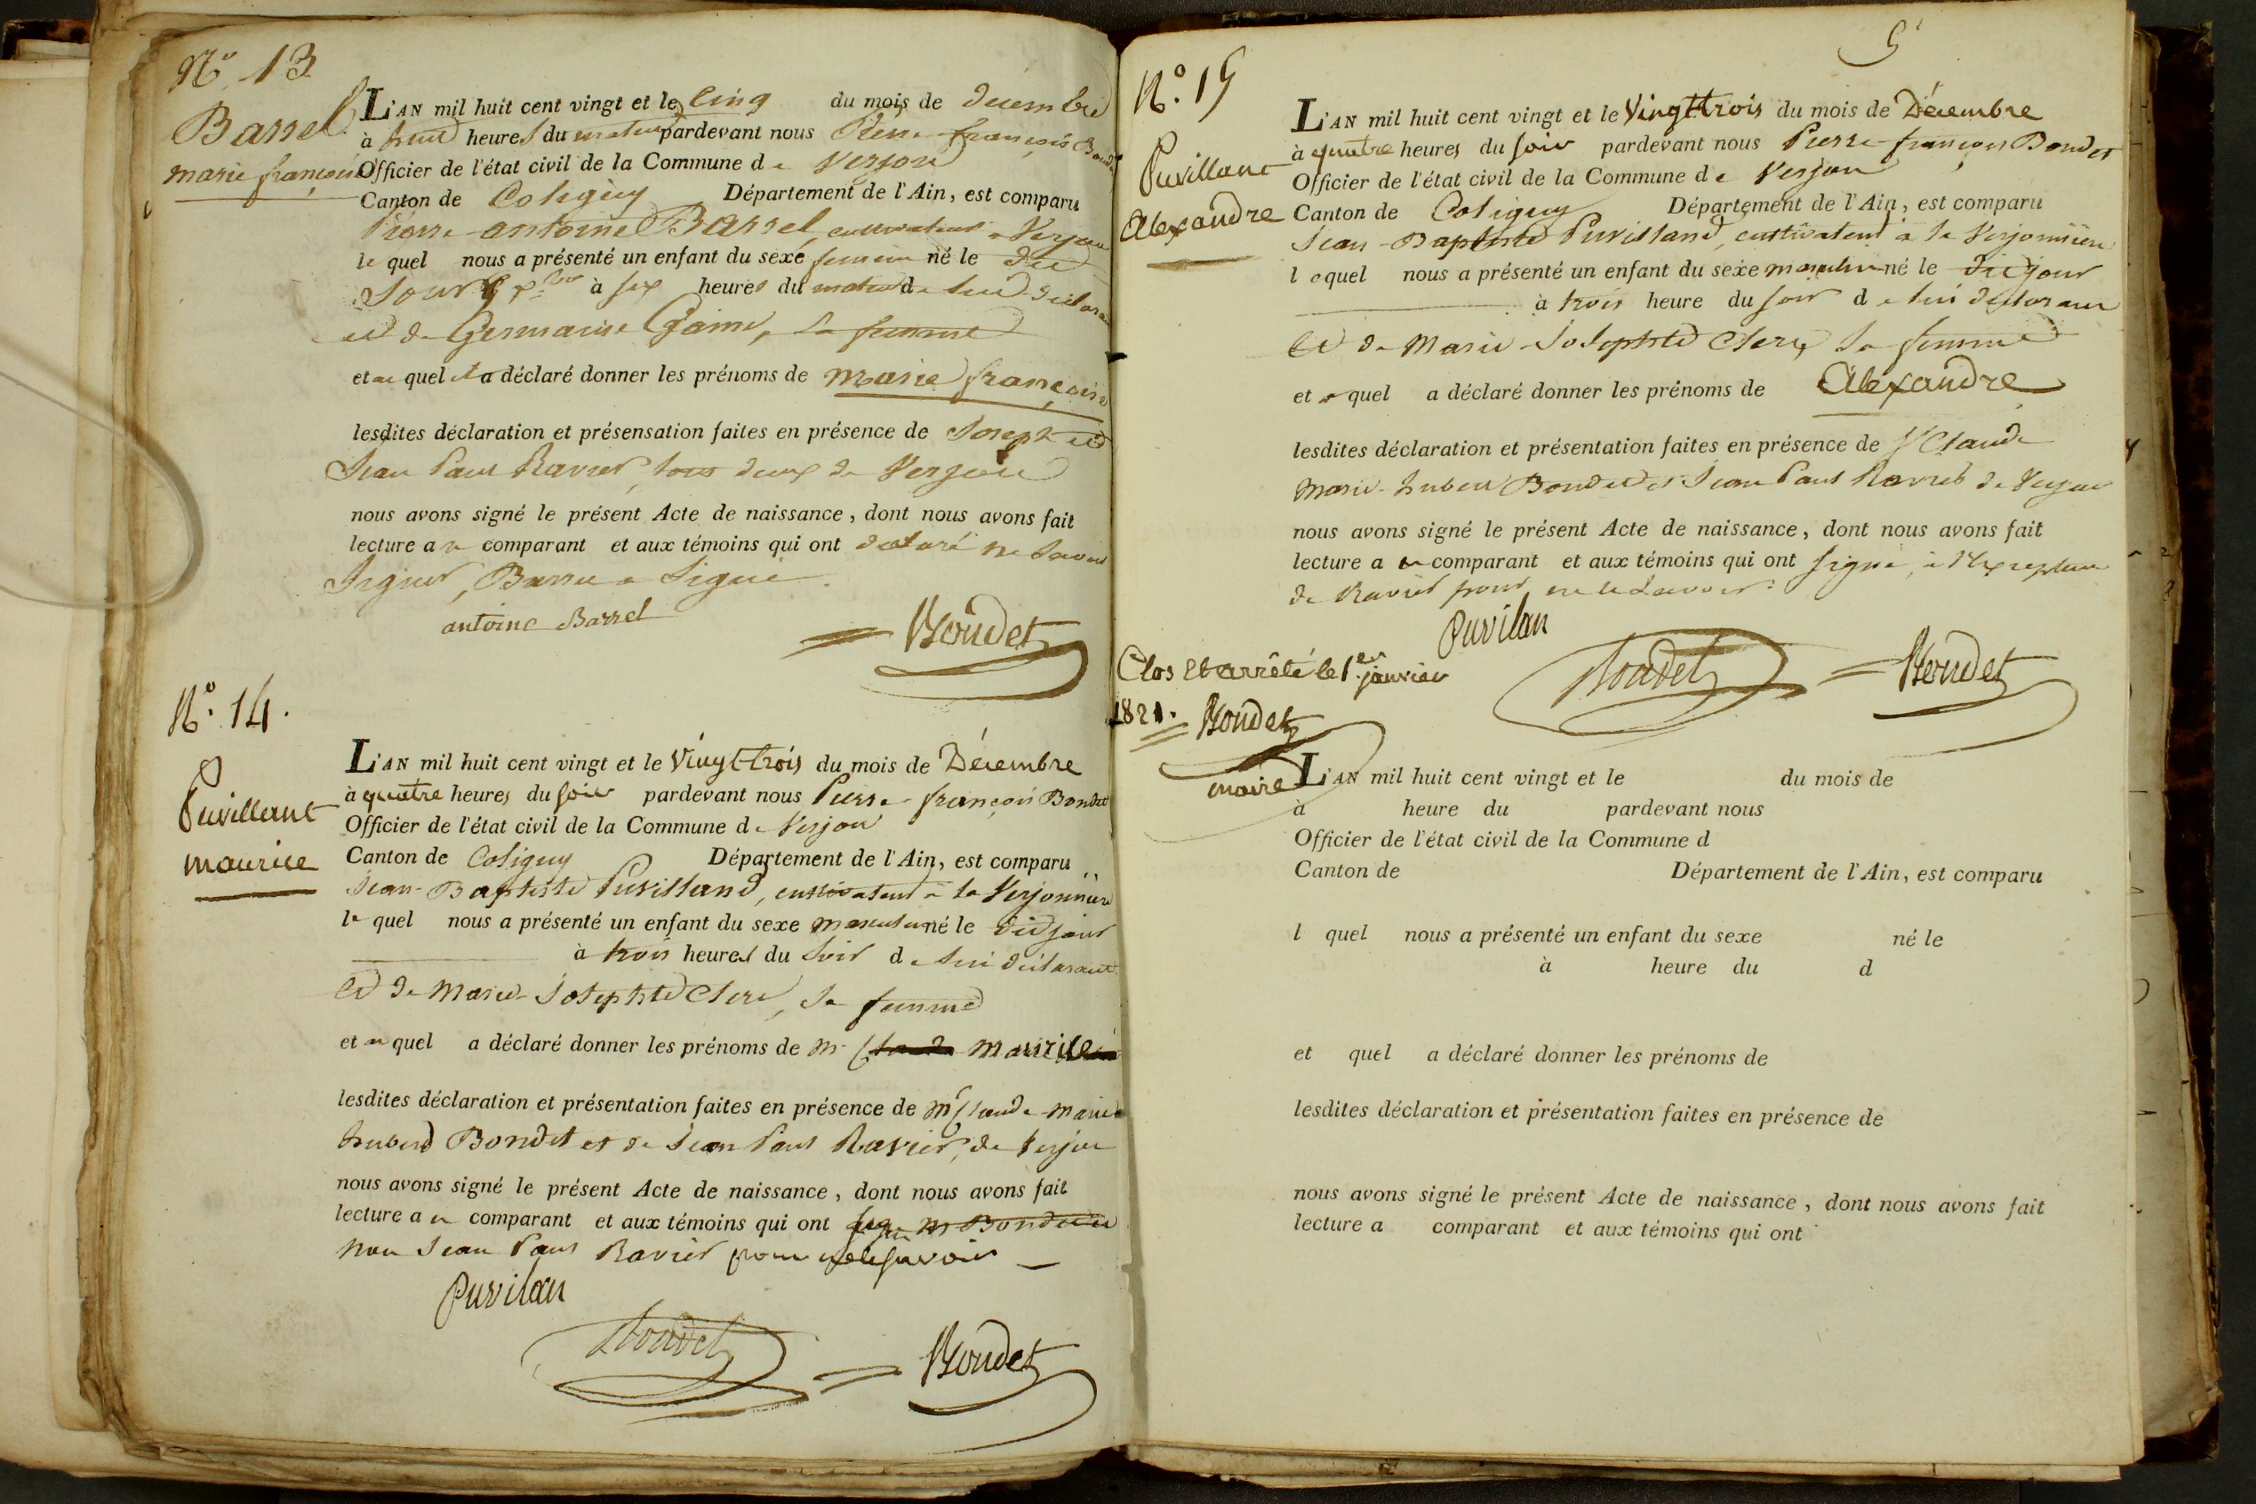 N.º 13.
Barrel
marie françoise
L'AN mil huit cent vingt et le cinq du mois de décembre
à huit heures du matin pardevant nous Pierre-françois Bondet
Officier de l'état civil de la Commune de Verjon
Canton de Coligny Département de l'Ain, est comparu
Pierre-antoine Barrel, cultivateur à Verjon
lequel nous a présenté un enfant du sexe feminin né le dit
Jour à six heures du matin de lui déclarant
et de Germaine, sa femme
et auquel il a déclaré donner les prénoms de marie françoise
lesdites déclaration et présensation faites en présence de Joseph et
Jean Paul Ravier, tous deux de Verjon
nous avons signé le présent Acte de naissance, dont nous avons fait
lecture au comparant et aux témoins qui ont déclaré ne savoir
signer, Barrel a signé.
antoine Barrel
Bondet
N.º 14.
Puvillant
maurice
L'AN mil huit cent vingt et le vingt trois du mois de Décembre
à quatre heures du soir pardevant nous Pierre-françois Bondet
Officier de l'état civil de la Commune de Verjon
Canton de Coligny Département de l'Ain, est comparu
Jean-Baptiste Puvilland, cultivateur à la Verjonnière
lequel nous a présenté un enfant du sexe masculin né le dit jour
à trois heures du soir de lui déclarant
et de Marie-Josephte Clerc, sa femme
et auquel a déclaré donner les prénoms de maurice
lesdites déclaration et présentation faites en présence de Mr Claude-Marie
hubert Bondet et de Jean Paul Ravier, de Verjon
nous avons signé le présent Acte de naissance, dont nous avons fait
lecture au comparant et aux témoins qui ont signé Mr Bondet et
non Jean Paul Ravier pour ne le savoir
Puvilan
Bondet
Bondet
5
N.º 15
Puvillant
Alexandre
L'AN mil huit cent vingt et le vingt trois du mois de Décembre
à quatre heures du soir pardevant nous Pierre-françois Bondet
Officier de l'état civil de la Commune de Verjon
Canton de Coligny Département de l'Ain, est comparu
Jean-Baptiste Puvilland, cultivateur à la Verjonnière
lequel nous a présenté un enfant du sexe masculin né le dit jour
à trois heure du soir de lui déclarant
et de Marie-Josephte Clerc, sa femme
et auquel a déclaré donner les prénoms de Alexandre
lesdites déclaration et présentation faites en présence de Claude
Marie-hubert Bondet et Jean Paul Ravier de Verjon
nous avons signé le présent Acte de naissance, dont nous avons fait
lecture au comparant et aux témoins qui ont signé, à l'exception
de Ravier pour ne le savoir.
Puvilan
Bondet
Bondet
Clos et arrêté le 1er janvier
1821.
Bondet
maire
L'AN mil huit cent vingt et le du mois de
à heure du pardevant nous
Officier de l'état civil de la Commune d
Canton de Département de l'Ain, est comparu
l quel nous a présenté un enfant du sexe né le
à heure du d
et quel a déclaré donner les prénoms de
lesdites déclaration et présentation faites en présence de
nous avons signé le présent Acte de naissance, dont nous avons fait
lecture a comparant et aux témoins qui ont